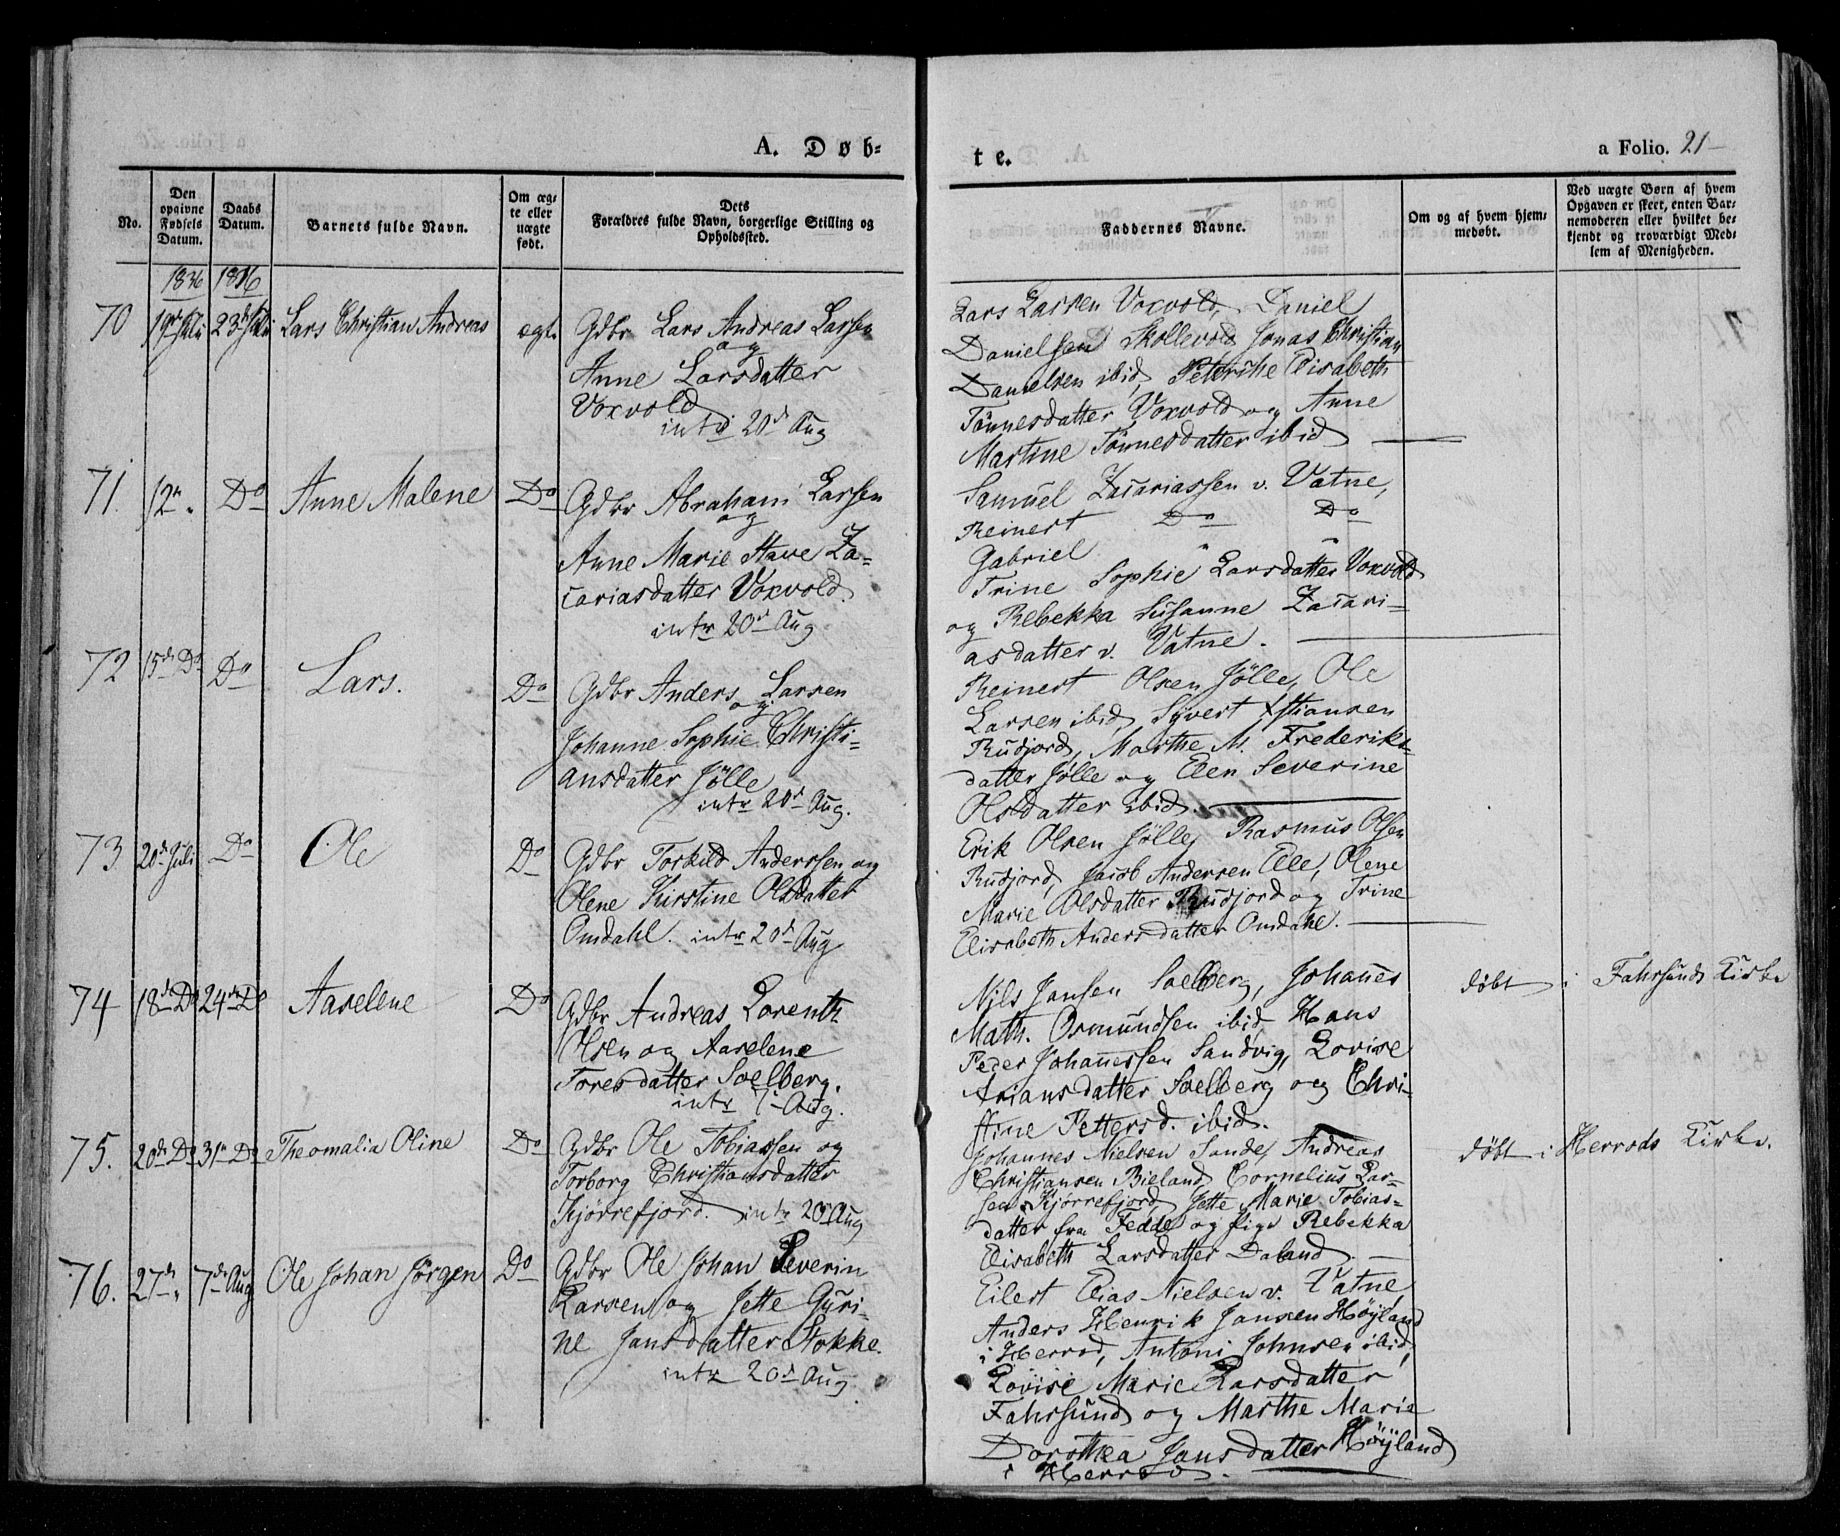 A. Døb-
te.
a Folio. 21
No.
Den opgivne Fødsels Datum.
Daabs Datum.
Barnets fulde Navn.
Om æg-
te eller
uægte
født.
Dets
Forældres fulde Navn, borgerlige Stilling og
Opholdssted.
Faddernes Navne.
Om og af hvem hjem-
medøbt.
Ved uægte Børn af hvem
Opgaven er skeet, enten Bar-
nemoderen eller hvilket be-
kjendt og troværdigt Med-
lem af Menigheden.
1836 1836
70 19de Juli 23de Juli Lars Christian Andreas ægte Gdbr Lars Andreas Larsen
og
Anne Larsdatter
Voxvold
intr 20d Aug
Lars Larsen Voxvold, Daniel
Danielsen Skollevold Jonas Christian
Danielsen ibid, Petrithe Elisabeth
Tönnesdatter Voxvold og Anne
Martine Tönnesdatter ibid
71. 12te Do Anne Malene Do Gdbr Abraham Larsen
og
Anne Marie Stave Za-
cariasdatter Voxvold.
intr 20d Aug
Samuel Zacariassen v. Vatne,
Reinert Do Do
Gabriel " "
Trine Sophie Larsdatter Voxvold
og Rebekka Susanne Zacari-
asdatter v. Vatne.
72 15de Do Do Lars. Do Gdbr Anders Larsen
og
Johanne Sophie Christi-
ansdatter Jölle
intr 20d Aug.
Reinert Olsen Jölle, Ole
Larsen ibid, Syvert Xstiansen
Rudjord, Marthe M. Frederiks-
datter Jölle og Elen Severine
Olsdatter ibid.
73 20de Juli Do Ole Do Gdbr Torkild Anderssen og
Olene Kirstine Olsdatter
Omdahl. intr 20d Aug
Erik Olsen Jölle, Rasmus Olsen
Rudjord, Jacob Andersen Elle, Olene
Marie Olsdatter Rudjord og Trine
Elisabeth Andersdatter Omdahl.
74 18de Do 24de Do Aaselene Do Gdbr Andreas Lorenth
Olsen og Aaselene
Toresdatter Soelberg.
intr 7 Aug.
Nils Jansen Soelberg, Johanes
Math. Osmundsen ibid, Hans
Peder Johanessen Sandvig, Lovise
Ariansdatter Soelberg og Chri-
stine Pettersd. ibid.
døbt i Fahrsund Kirke
75. 20de Do 31te Do Theomalia Oline Do Gdbr Ole Tobiassen og
Torborg Christiansdatter
Kjörrefjord. intr 20d Aug
Johannes Nielsen Sande, Andreas
Christiansen Bieland, Cornelius Lar-
sen Kjörrefjord, Jette Marie Tobias-
datter fra Fedde og Pige Rebekka
Elisabeth Larsdatter Daland.
døbt i Herrods Kirke.
76. 27de " 7de Aug Ole Johan Jörgen Do Gdbr Ole Johan Severin
Larsen og Jette Guri-
ne Jansdatter Stokke.
intr 20d Aug
Eilert Elias Nielsen v. Vatne
Anders Henrik Jansen Höyland
i Herrod, Antoni Johnsen ibid,
Lovise Marie Larsdatter
Fahrsund og Marthe Marie
Dorthea Jansdatter Höyland
i Herrod.